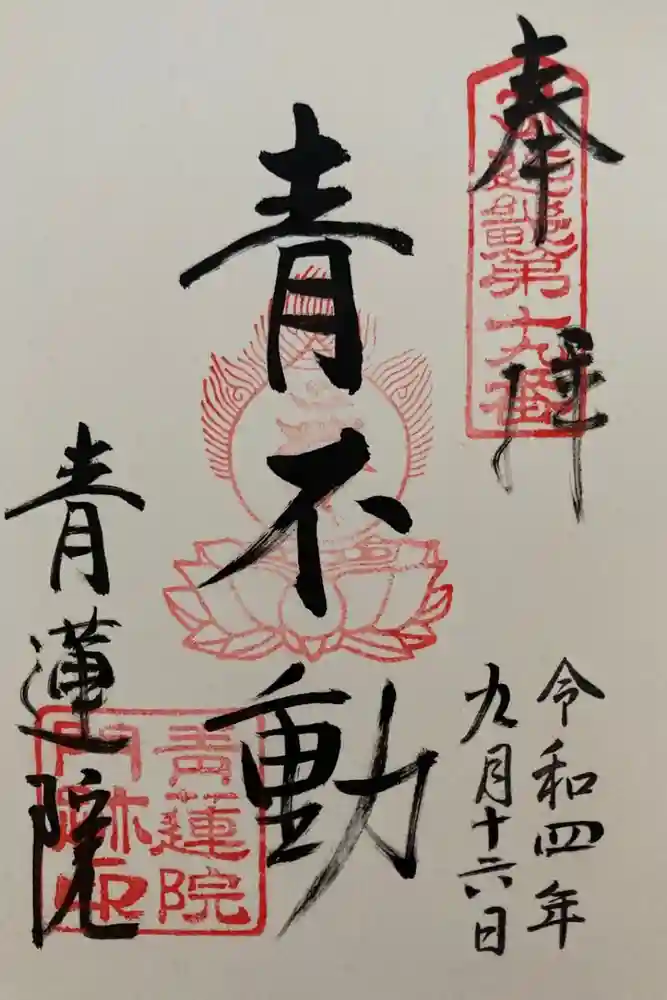 奉拝
近畿第十九番
令和四年
九月十六日
青不動
青蓮院
青蓮院
門跡印